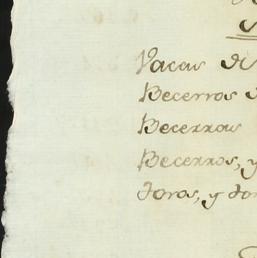 Vacas de
Becerros
Becerras
Becerros, y
toros, y